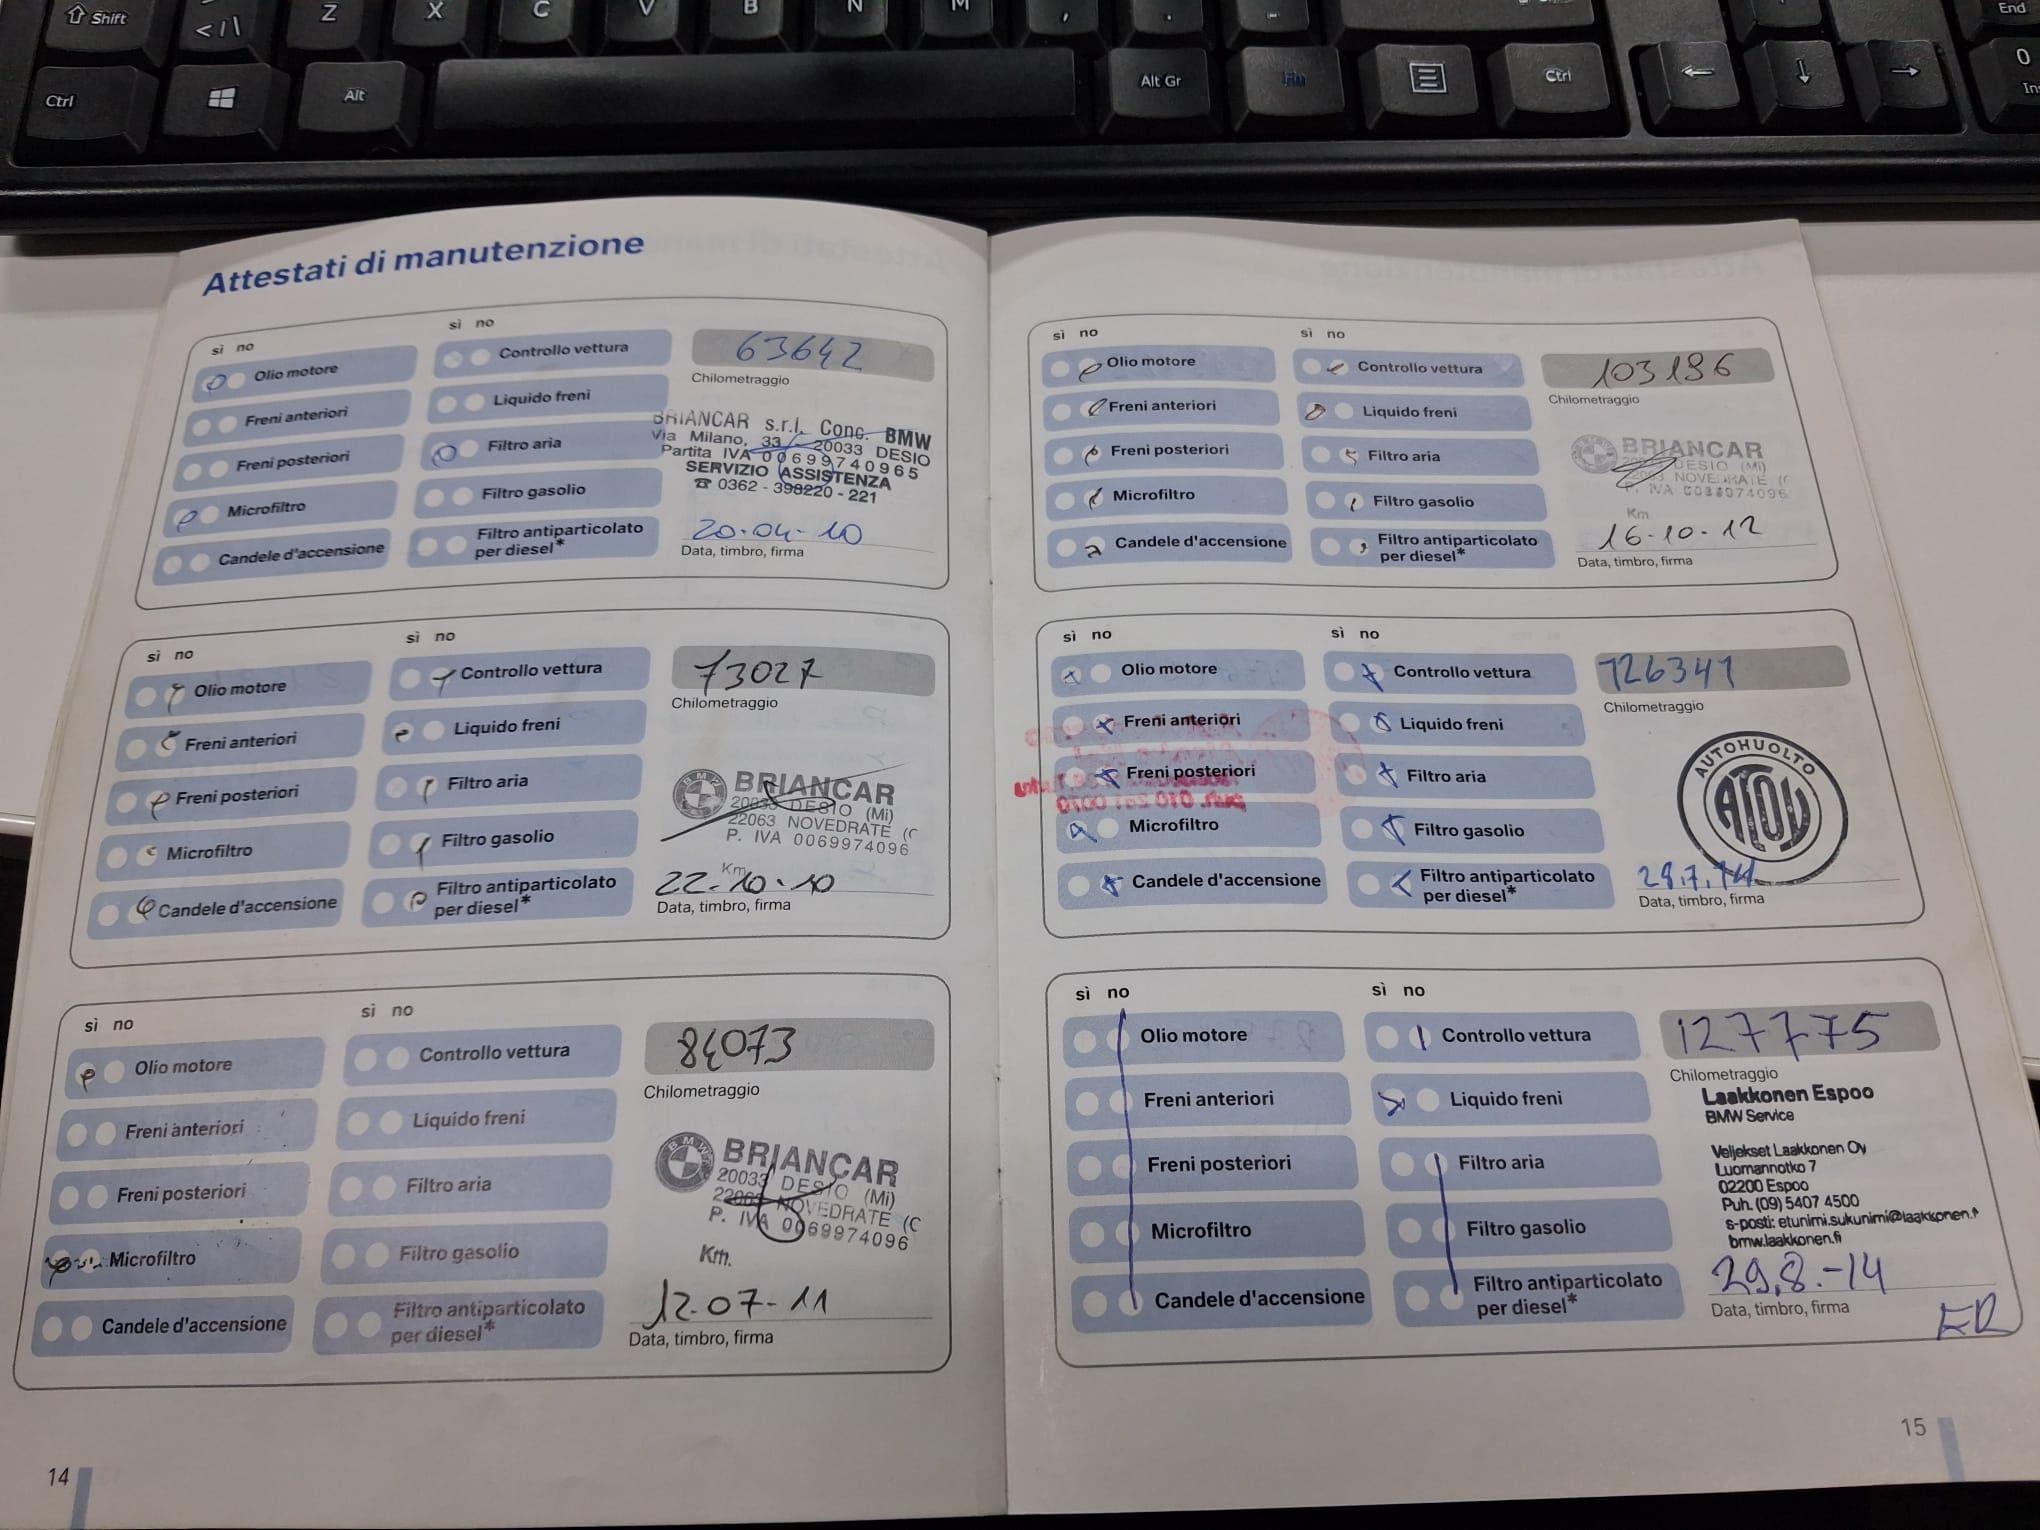 Shift
Z
X
C
V
B
N
M
End
Ctrl
Alt
Alt Gr
Fn
Ctrl
0
Ins
Attestati di manutenzione
sì no
sì no
Olio motore
Controllo vettura
63642
Chilometraggio
Freni anteriori
Liquido freni
Freni posteriori
Filtro aria
BRIANCAR s.r.l. Conc. BMW
Via Milano, 33 - 20033 DESIO
Partita IVA 00699740965
SERVIZIO ASSISTENZA
☎ 0362 - 398220 - 221
Microfiltro
Filtro gasolio
Candele d'accensione
Filtro antiparticolato
per diesel*
20-04-10
Data, timbro, firma
sì no
sì no
Olio motore
Controllo vettura
73027
Chilometraggio
Freni anteriori
Liquido freni
Freni posteriori
Filtro aria
BMW
BRIANCAR
20033 DESIO (Mi)
22063 NOVEDRATE (C
P. IVA 0069974096
Microfiltro
Filtro gasolio
Candele d'accensione
Filtro antiparticolato
per diesel*
Km
22-10-10
Data, timbro, firma
sì no
sì no
Olio motore
Controllo vettura
84073
Chilometraggio
Freni anteriori
Liquido freni
Freni posteriori
Filtro aria
BMW
BRIANCAR
20033 DESIO (Mi)
22063 NOVEDRATE (C
P. IVA 0069974096
Microfiltro
Filtro gasolio
Km.
Candele d'accensione
Filtro antiparticolato
per diesel*
12-07-11
Data, timbro, firma
14
sì no
sì no
Olio motore
Controllo vettura
103196
Chilometraggio
Freni anteriori
Liquido freni
Freni posteriori
Filtro aria
BRIANCAR
DESIO (Mi)
NOVEDRATE (C
P. IVA
Microfiltro
Filtro gasolio
Candele d'accensione
Filtro antiparticolato
per diesel*
Km
16-10-12
Data, timbro, firma
sì no
sì no
Olio motore
Controllo vettura
126341
Chilometraggio
Freni anteriori
Liquido freni
Freni posteriori
Filtro aria
AUTOHUOLTO
ATOY
Microfiltro
Filtro gasolio
Candele d'accensione
Filtro antiparticolato
per diesel*
28.7.14
Data, timbro, firma
sì no
sì no
Olio motore
Controllo vettura
127775
Chilometraggio
Freni anteriori
Liquido freni
Freni posteriori
Filtro aria
Laakkonen Espoo
BMW Service
Veljekset Laakkonen Oy
Luomannotko 7
02200 Espoo
Puh. (09) 5407 4500
s-posti: etunimi.sukunimi@laakkonen.fi
bmw.laakkonen.fi
Microfiltro
Filtro gasolio
Candele d'accensione
Filtro antiparticolato
per diesel*
29.8.-14
Data, timbro, firma
15